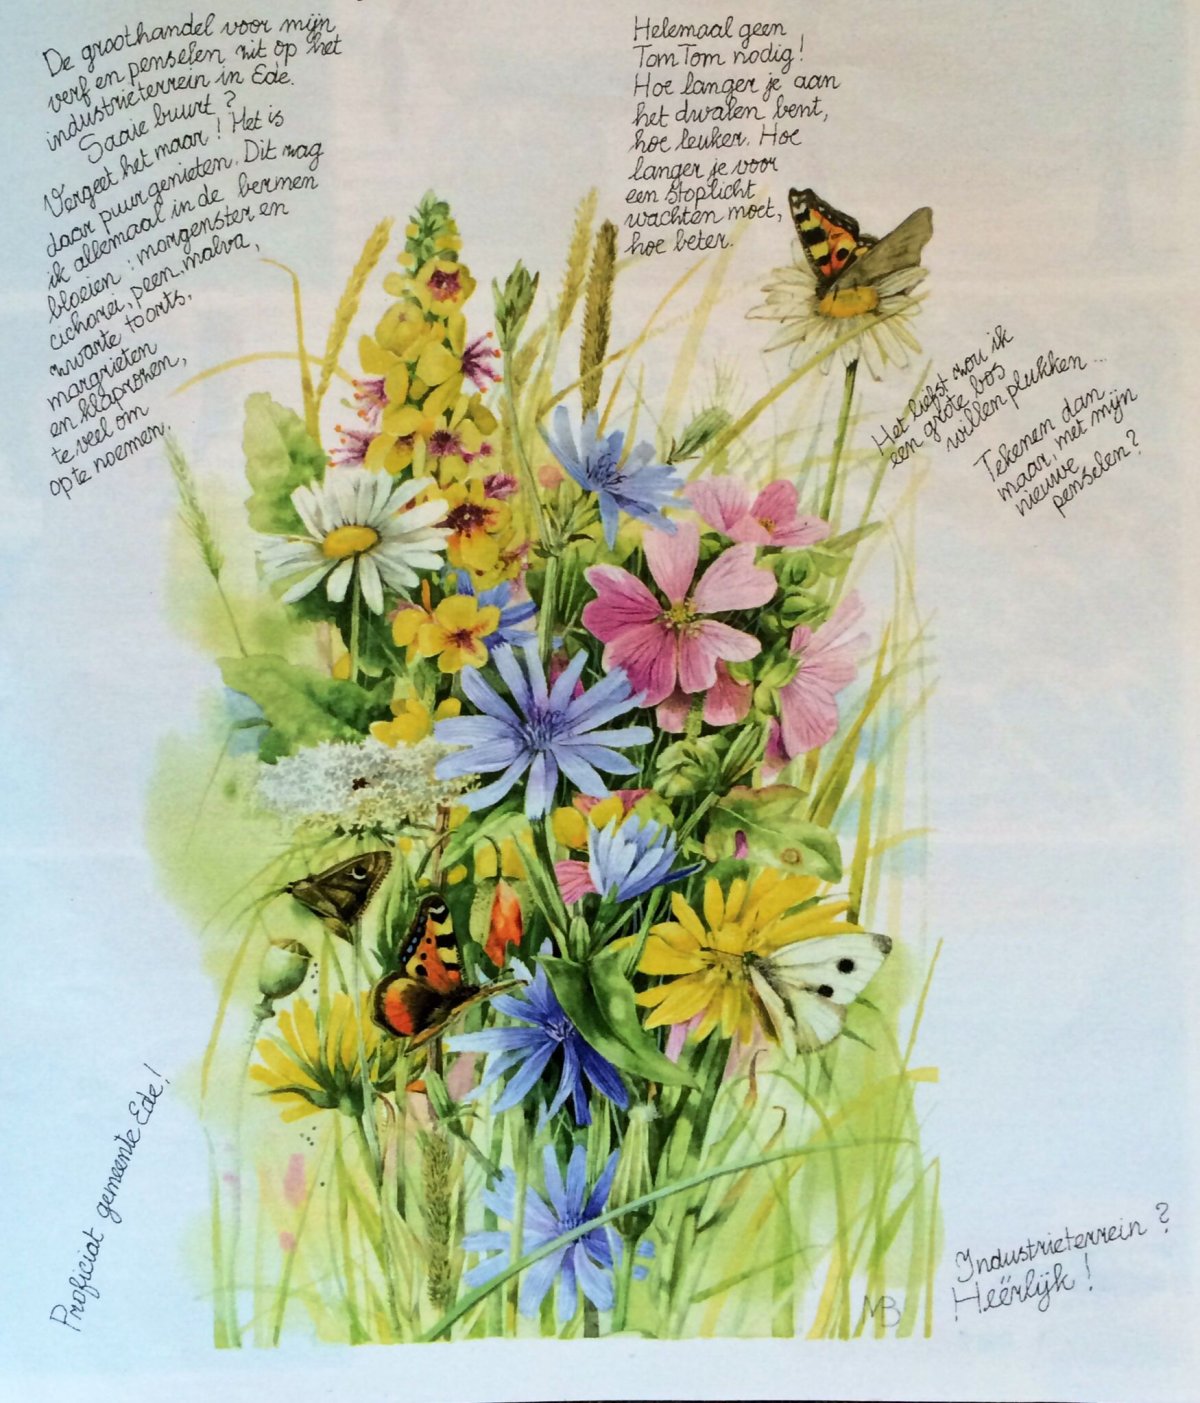 De groothandel voor mijn
verf en penselen zit op het
industrieterrein in Ede.
Saaie buurt?
Vergeet het maar! Het is
daar puur genieten. Dit zag
ik allemaal in de bermen
bloeien: morgenster en
cichorei, peen, malva,
zwarte toorts,
margrieten
en klaprozen,
te veel om
op te noemen.
Helemaal geen
TomTom nodig!
Hoe langer je aan
het dwalen bent,
hoe leuker. Hoe
langer je voor
een stoplicht
wachten moet,
hoe beter.
Het liefst zou ik
een grote bos
willen plukken...
Tekenen dan
maar, met mijn
nieuwe
penselen?
Proficiat gemeente Ede!
Industrieterrein?
Heërlijk!
MB